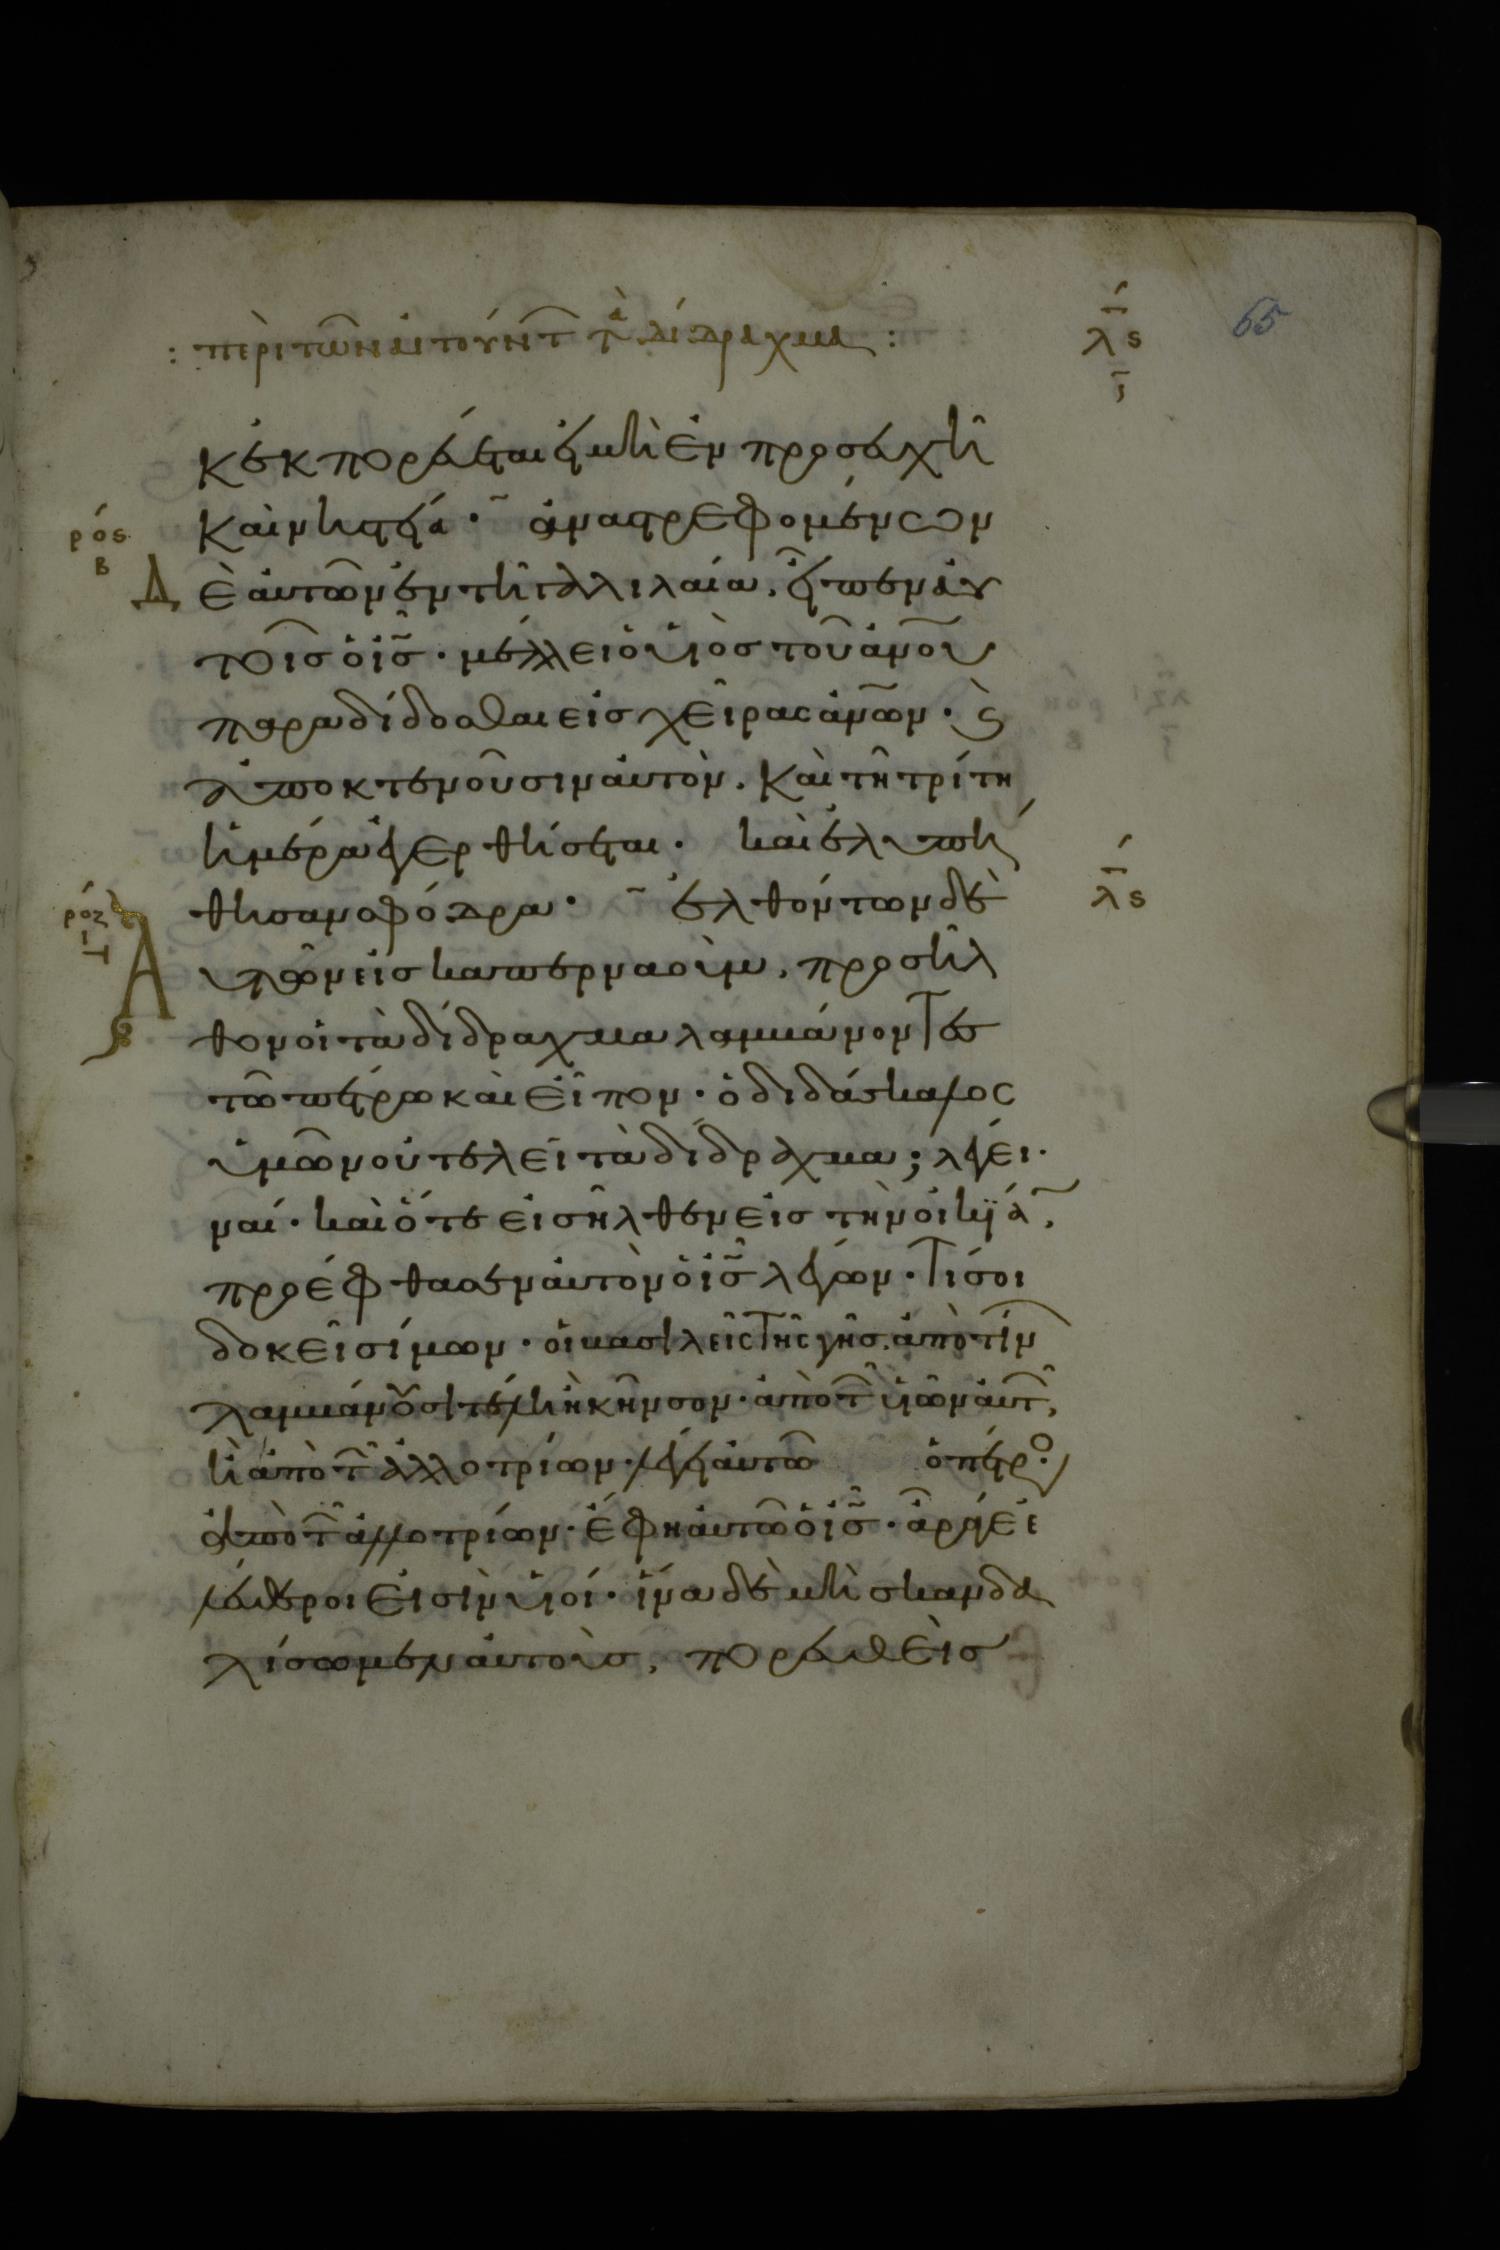 : περὶ τῶν αἰτούντ̅ τὰ δίδραχμα :
λ̅ς 65
ι̅
κἐκπορεύεται εἰ μὴ ἐν προσευχῆ
ρος β
καὶ νηστεία · ἀναστρεφομένων
Δ ὲ αὐτῶν ἐν τῆ γαλιλαία, εἶπεν αὐ
τοῖς ὁ ι̅ς̅ · μέλλει ὁ υἱὸς τοῦ α̅ν̅ο̅υ̅
παραδίδοσθαι εἰς χεῖρας ἀν̅ων · ϛ
ἀποκτενοῦσιν αὐτὸν. καὶ τῆ τρίτη
ἡμέρα ἐγερθήσεται · καὶ ἐλυπή
ροζ ι
θησαν σφόδρα · ἐλθόντων δὲ
λ̅ς
Α ὐτῶν εἰς καπερναοὺμ, προσῆλ
θον οἱ τὰ δίδραχμα λαμβάνοντες
τῶ πέτρω καὶ εἶπον · ὁ διδάσκαλος
ὑμῶν οὐ τελεῖ τὰ δίδραχμα; λέγει ·
ναί · καὶ ὅτε εἰσῆλθεν εἰς τὴν οἰκϊα̅,
προέφθασεν αὐτὸν ὁ ι̅ς̅ λέγων · Τί σοι
δοκεῖ σίμων · οἱ βασιλεῖς τῆς γῆς. ἀπὸ τίν
λαμβάνουσι τέλη ἢ κῆνσον · ἀπὸ τ̅ υἱῶν αὐτ̅,
ἢ ἀπὸ τ̅ ἀλλοτρίων · λέγει αὐτῶ ὁ πέτρο·
ἀπὸ τ̅ ἀλλοτρίων · ἔφη αὐτῶ ὁ ι̅ς̅ · ἄρα γε ἐ
λεύθεροι εἰσὶν υἱοί · ἵνα δὲ μὴ σκανδα
λίσωμεν αὐτοὺς, πορευθεὶς